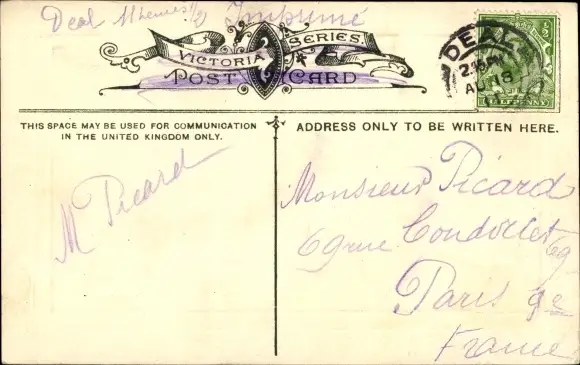 Deal Imprimé
VICTORIA SERIES.
POST CARD
DEAL
2.15PM
AU 18
HALFPENNY
THIS SPACE MAY BE USED FOR COMMUNICATION
IN THE UNITED KINGDOM ONLY.
ADDRESS ONLY TO BE WRITTEN HERE.
M Picard
Monsieur Picard
69 rue Condorcet 69
Paris 9e
France